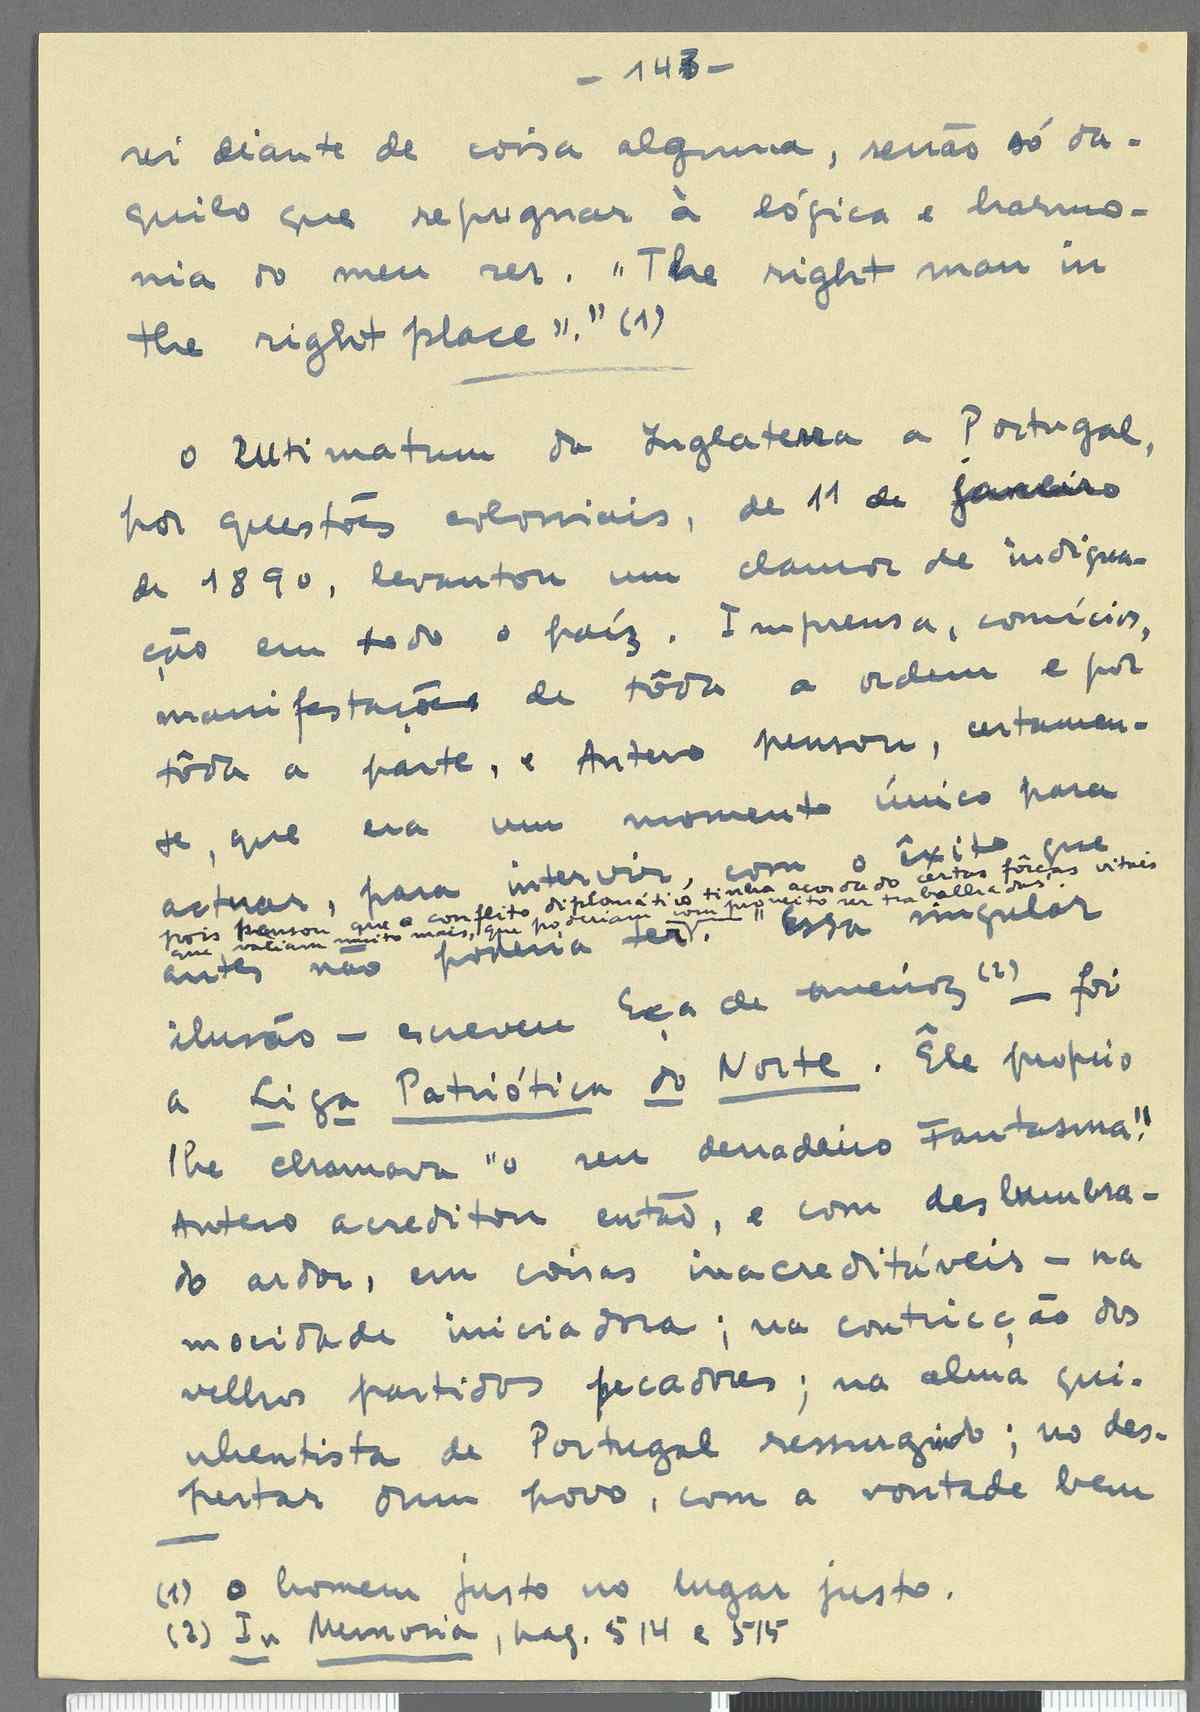 - 143 -
rei diante de coisa alguma, senão só da-
quilo que repugnar à lógica e harmo-
nia do meu ser. "The right man in
the right place"." (1)
O Ultimatum da Inglaterra a Portugal,
por questões coloniais, de 11 de janeiro
de 1890, levantou um clamor de indigna-
ção em todo o país. Imprensa, comícios,
manifestações de tôda a ordem e por
tôda a parte, e Antero pensou, certamen-
te, que era um momento único para
actuar, para intervir, com o êxito que
pois pensou que o conflito diplomático tinha acordado certas fôrças vitais
que valiam muito mais, que poderiam com proveito ser trabalhadas.
antes não poderia ter. "Essa singular
ilusão — escreveu Eça de Queiroz (2) — foi
a Liga Patriótica do Norte. Êle proprio
lhe chamava "o seu derradeiro Fantasma".
Antero acreditou então, e com deslumbra-
do ardor, em coisas inacreditáveis — na
mocidade iniciadora; na contricção dos
velhos partidos pecadores; na alma qui-
nhentista de Portugal ressurgindo; no des-
pertar dum povo, com a vontade bem
(1) O homem justo no lugar justo.
(2) In Memoria, pag. 514 e 515